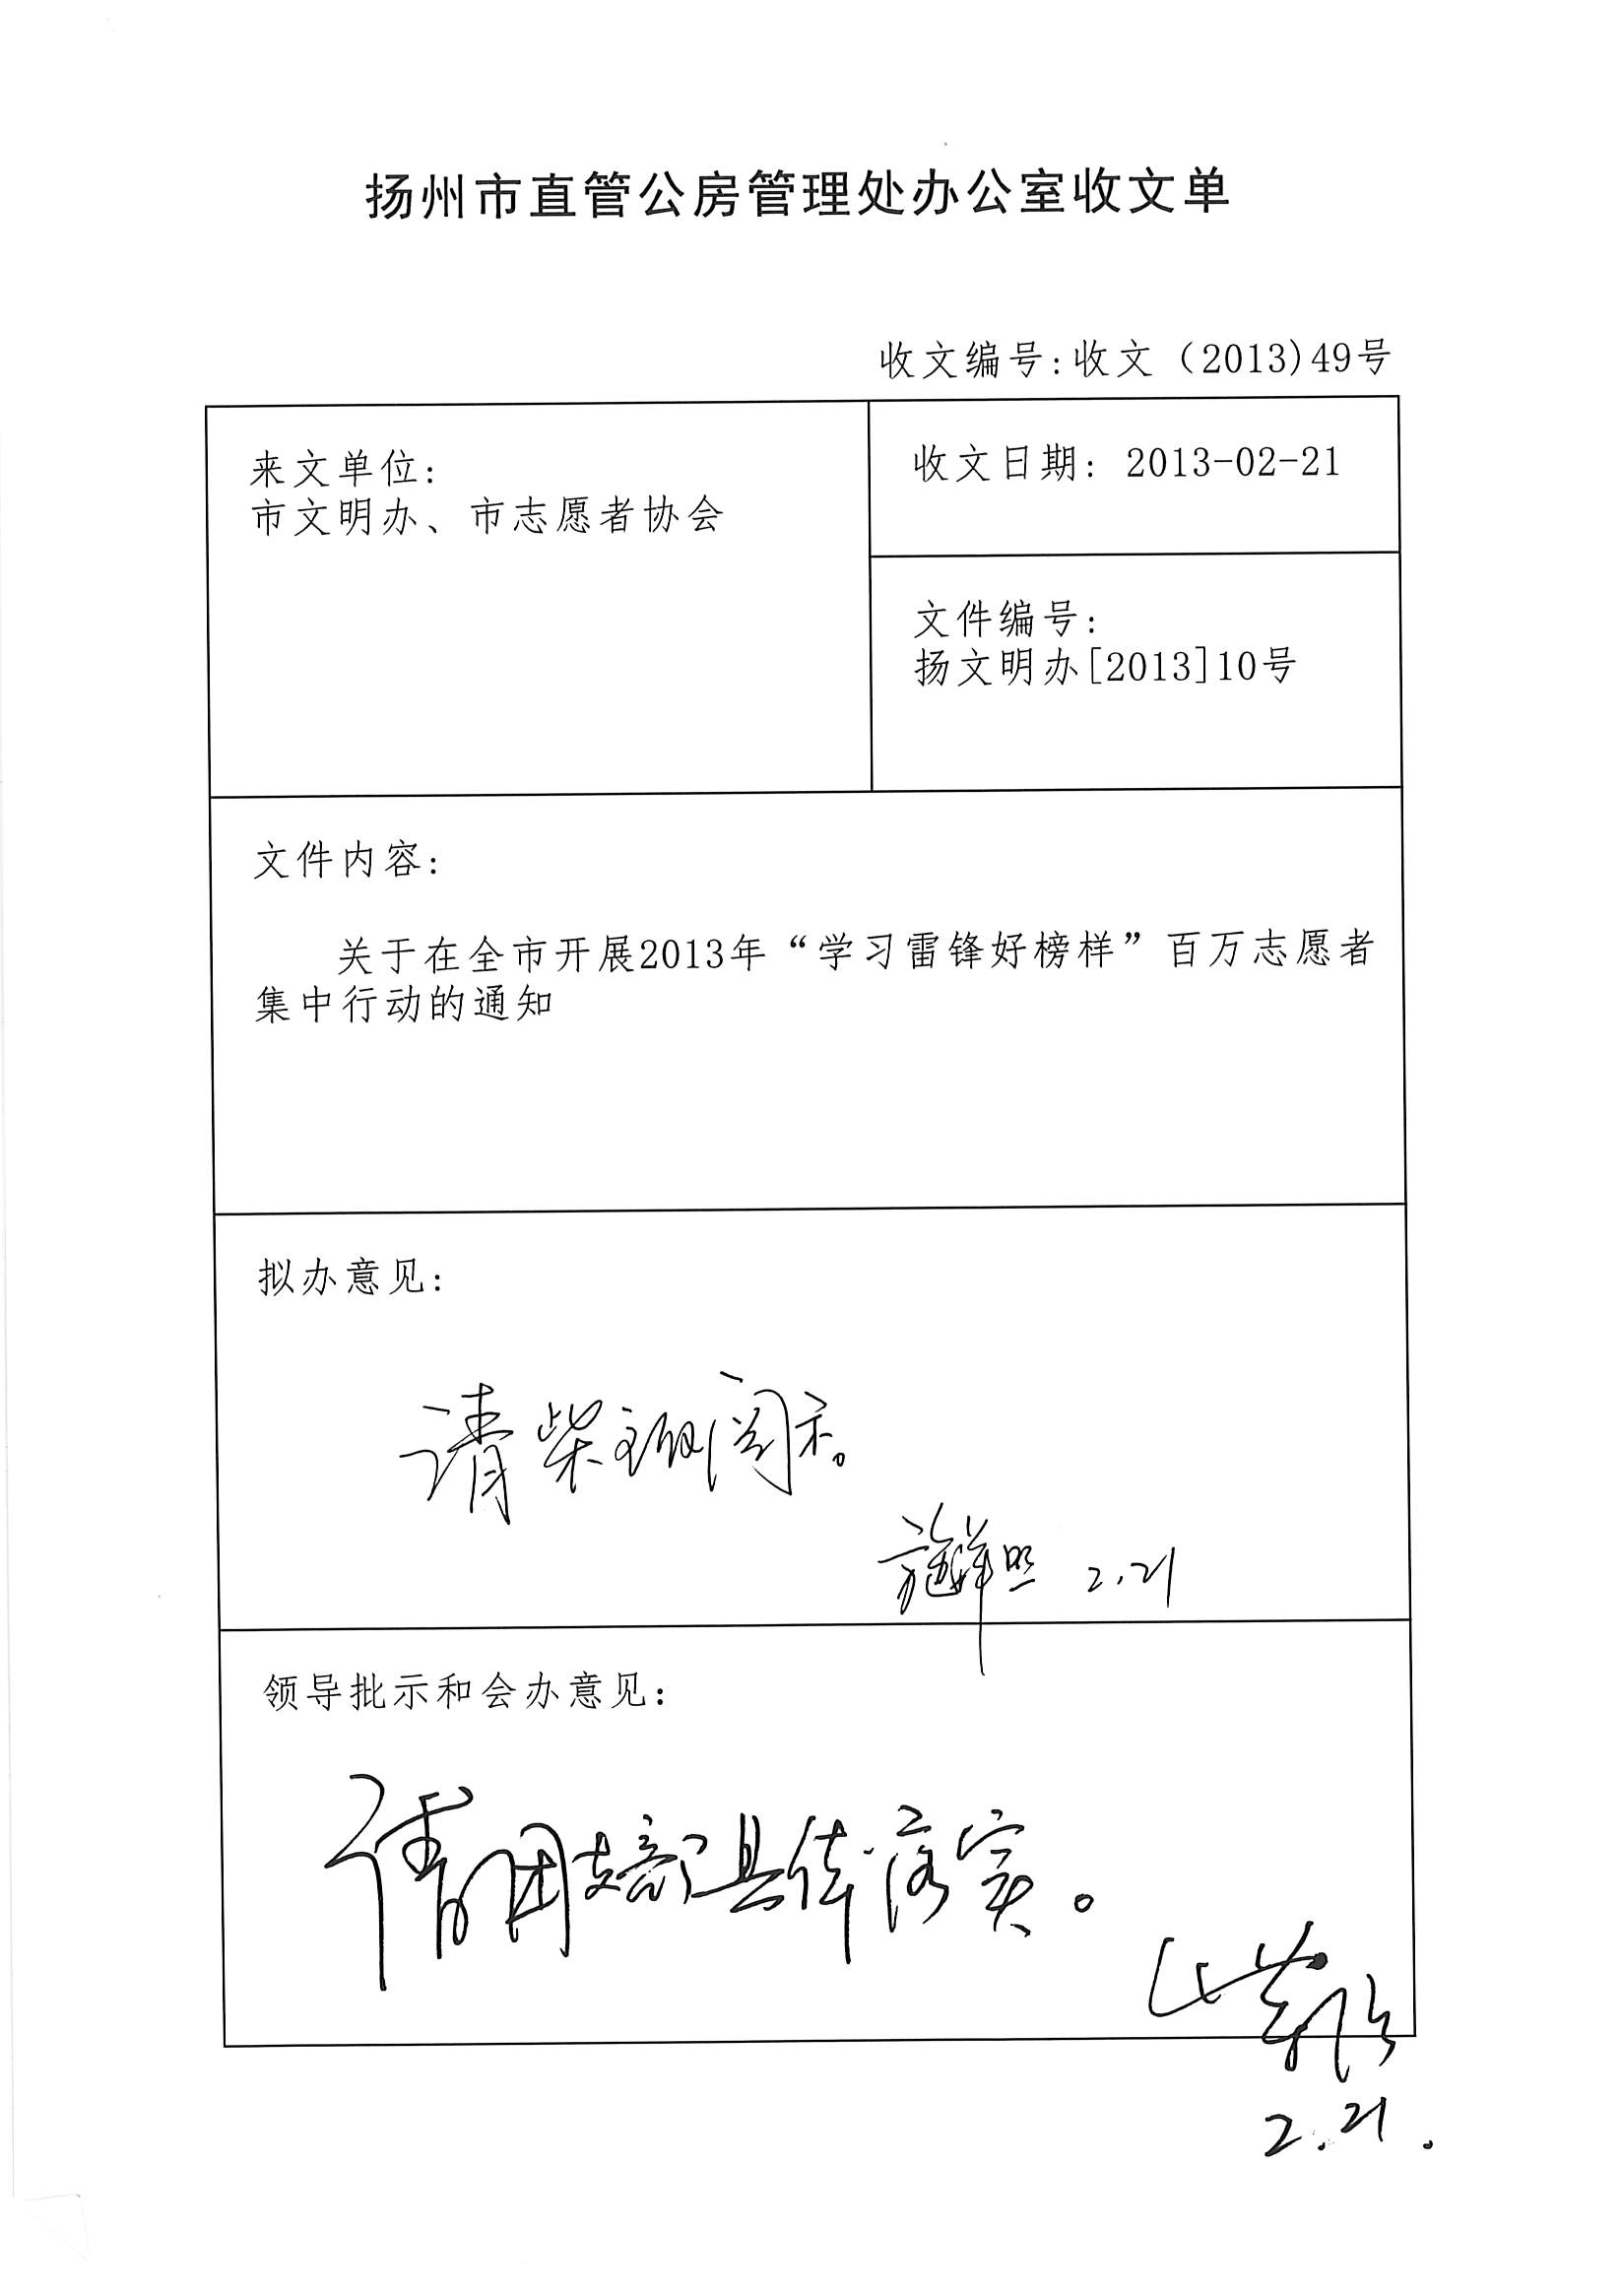 扬州市直管公房管理处办公室收文单
收文编号:收文（2013)49号
来文单位:
市文明办、市志愿者协会
收文日期: 2013-02-21
文件编号:
扬文明办[2013]10号
文件内容:
关于在全市开展2013年“学习雷锋好榜样”百万志愿者
集中行动的通知
拟办意见:
请柴主任阅示。
2.21
领导批示和会办意见:
请团支部具体落实。
2.21.